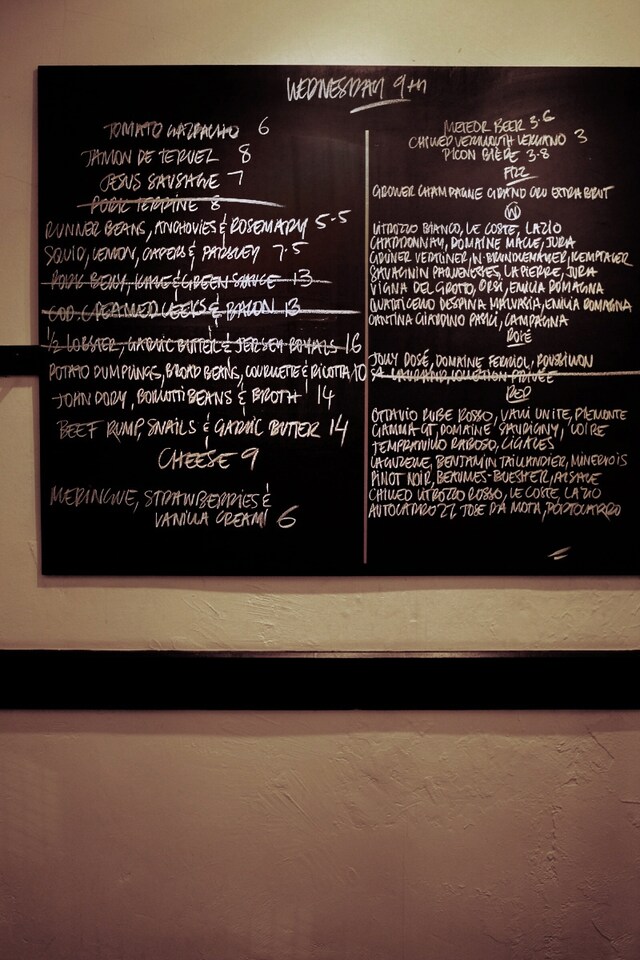 WEDNESDAY 9TH
TOMATO GAZPACHO 6
JAMON DE TERUEL 8
JESUS SAUSAGE 7
PORK TERRINE 8
RUNNER BEANS, ANCHOVIES & ROSEMARY 5.5
SQUID, LEMON, CAPERS & PARSLEY 7.5
PORK BELLY, KALE & GREEN SAUCE 13
COD CREAMED LEEKS & BACON 13
1/2 LOBSTER, GARLIC BUTTER & JERSEY ROYALS 16
POTATO DUMPLINGS, BROAD BEANS, COURGETTE & RICOTTA 10
JOHN DORY, BORLOTTI BEANS & BROTH 14
BEEF RUMP, SNAILS & GARLIC BUTTER 14
CHEESE 9
MERINGUE, STRAWBERRIES &
VANILLA CREAM 6
METEOR BEER 3.6
CHILLED VERMOUTH 3
PICON BIÈRE 3.8
FIZZ
GROWER CHAMPAGNE GRAND CRU EXTRA BRUT
W
LITROZZO BIANCO, LE COSTE, LAZIO
CHARDONNAY, DOMAINE MACLE, JURA
GRÜNER VELTLINER, N. BRÜNDLMAYER, KEMPTALER
SAVAGNIN LAPIERRE, JURA
VIGNA DEL GROTTO, ORSI, EMILIA ROMAGNA
QUATICELLO DESPINA MALVASIA, EMILIA ROMAGNA
CANTINA GIARDINO PASKI, CAMPAGNA
ROSÉ
JOLLY DOSÉ, DOMAINE FERRIOL, ROUSSILLON
RED
OTTAVIO RUBE ROSSO, VALLI UNITE, PIEMONTE
GAMMA GT, DOMAINE SAURIGNY, LOIRE
TEMPRANILLO RABOSO, CIGALES
LAGUZELLE, BENJAMIN TAILLANDIER, MINERVOIS
PINOT NOIR, ALSACE
CHILLED LITROZZO ROSSO, LE COSTE, LAZIO
AUTOCARRO 27, JOSE DA MOTA, PORTOCARRO